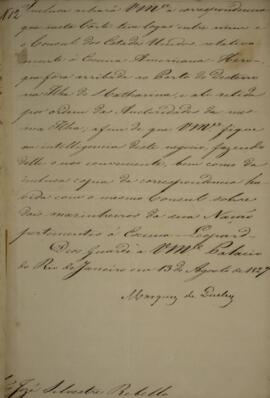 Inclusa achará VMce a correspondencia
que nesta Corte teve logar entre mim e
o Consul dos Estados Unidos, relativa
mente à Escuna Americana
que fora arribada ao Porto do Desterro
na Ilha de S. Catharina, e alli retida
por ordem das Authoridades da mes
ma Ilha, a fim de que VMce fique
na intelligencia deste negocio, fazendo
delle o uso conveniente, bem como da
inclusa copia da correspondencia ha
vida com o mesmo Consul sobre
dois marinheiros da sua Nação
pertencentes à Escuna Leopard
Deos Guarde a VMce Palacio
do Rio de Janeiro em 13 de Agosto de 1827
Marquez de Queluz
Jozé Silvestre Rebello